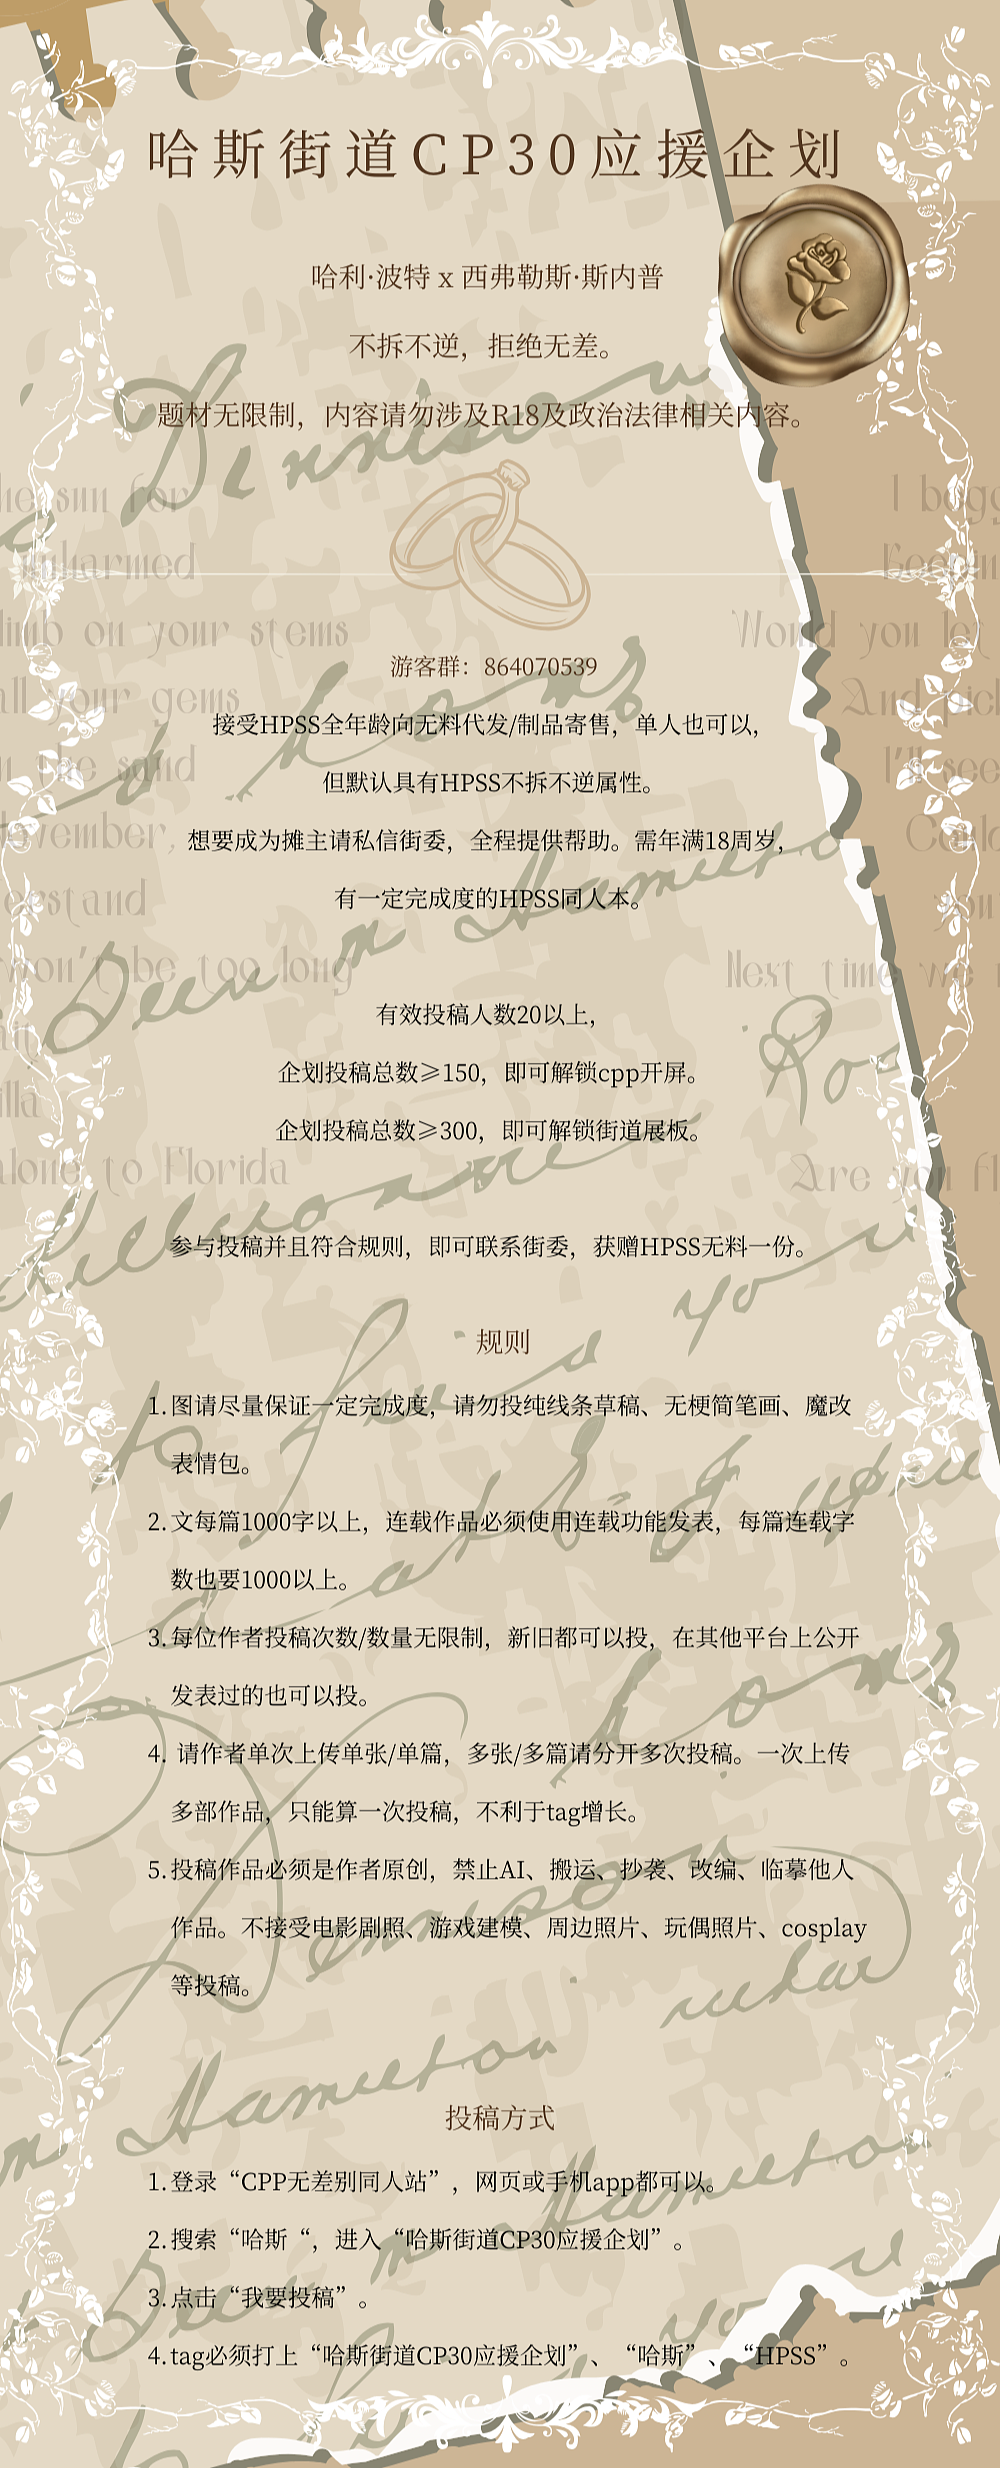 哈斯街道CP30应援企划
哈利·波特 x 西弗勒斯·斯内普
不拆不逆，拒绝无差。
题材无限制，内容请勿涉及R18及政治法律相关内容。
unharmed
climb on your stems
all your gems
the sand
Would you let
And pick
I'll see
won't be too long
Next time we
alone to Florida
Are you fl
游客群：864070539
接受HPSS全年龄向无料代发/制品寄售，单人也可以，
但默认具有HPSS不拆不逆属性。
想要成为摊主请私信街委，全程提供帮助。需年满18周岁，
有一定完成度的HPSS同人本。
有效投稿人数20以上，
企划投稿总数≥150，即可解锁cpp开屏。
企划投稿总数≥300，即可解锁街道展板。
参与投稿并且符合规则，即可联系街委，获赠HPSS无料一份。
规则
1.图请尽量保证一定完成度，请勿投纯线条草稿、无梗简笔画、魔改
表情包。
2.文每篇1000字以上，连载作品必须使用连载功能发表，每篇连载字
数也要1000以上。
3.每位作者投稿次数/数量无限制，新旧都可以投，在其他平台上公开
发表过的也可以投。
4. 请作者单次上传单张/单篇，多张/多篇请分开多次投稿。一次上传
多部作品，只能算一次投稿，不利于tag增长。
5.投稿作品必须是作者原创，禁止AI、搬运、抄袭、改编、临摹他人
作品。不接受电影剧照、游戏建模、周边照片、玩偶照片、cosplay
等投稿。
投稿方式
1.登录“CPP无差别同人站”，网页或手机app都可以。
2.搜索“哈斯“，进入“哈斯街道CP30应援企划”。
3.点击“我要投稿”。
4.tag必须打上“哈斯街道CP30应援企划”、“哈斯”、“HPSS”。